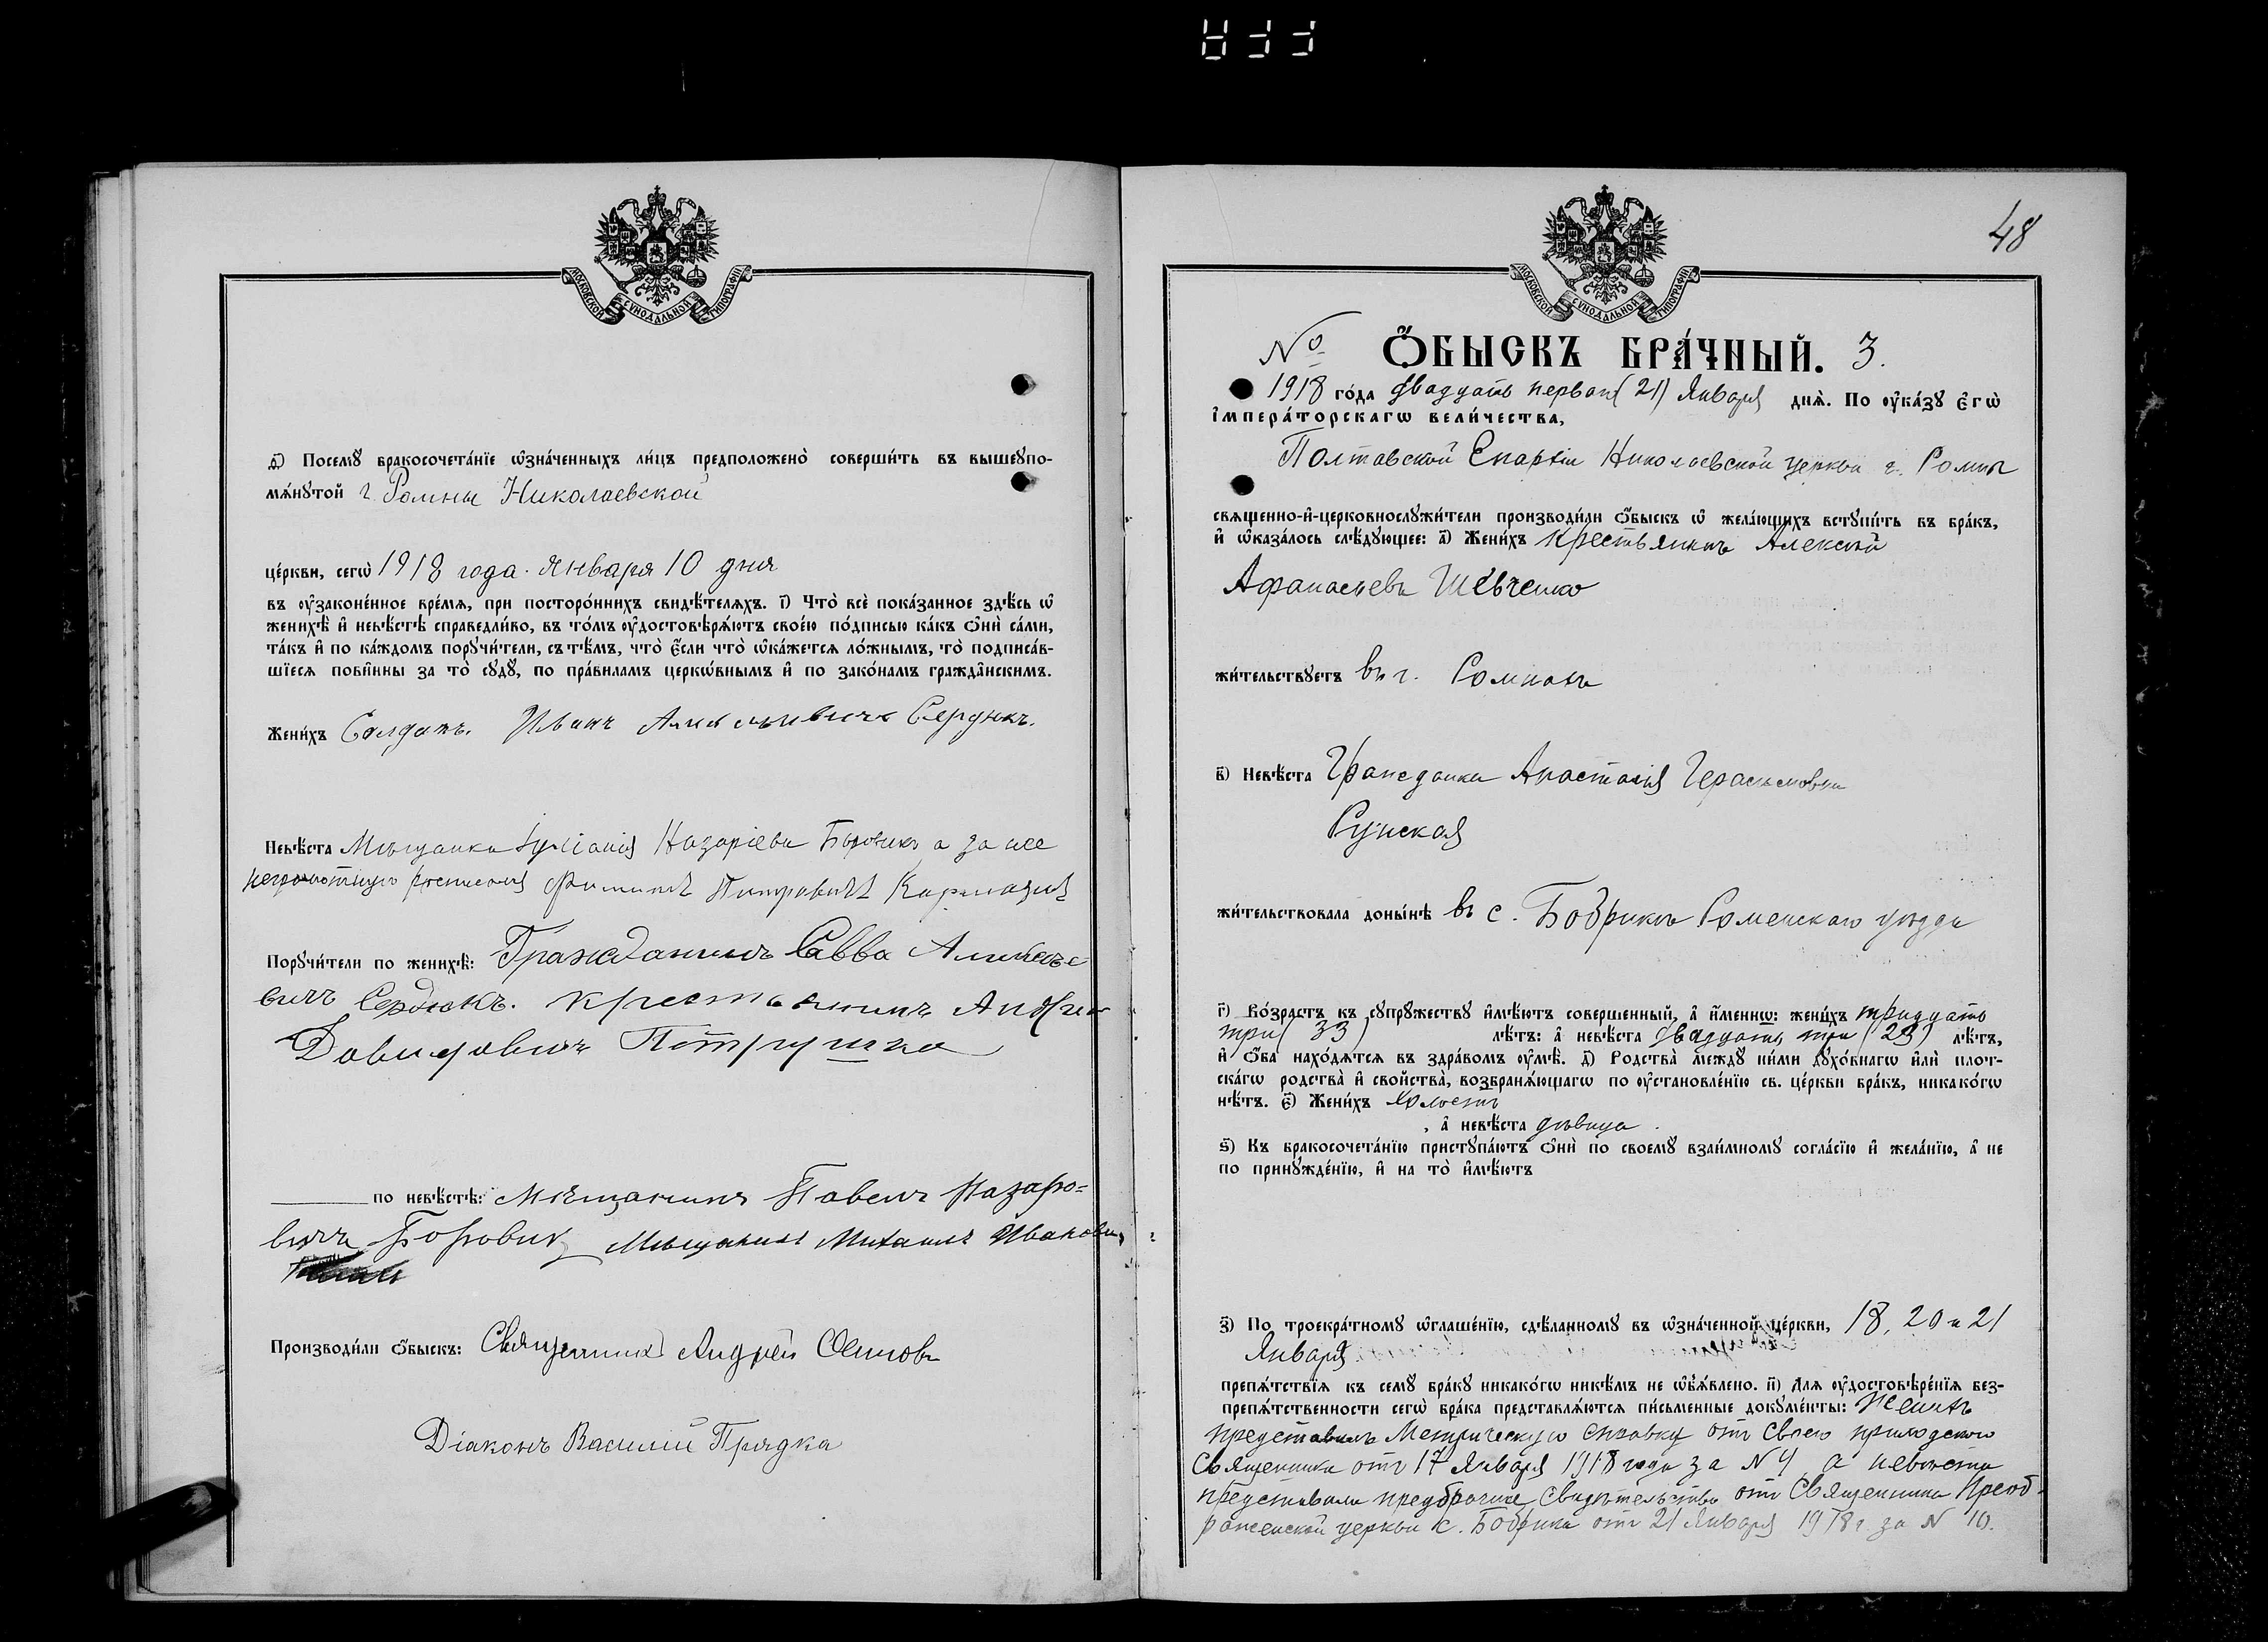 МОСКОВСКОЙ СѴНОДАЛЬНОЙ ТИПОГРАФІИ
д҃і) Посемꙋ бракосочета́нїе ѡ҆зна́ченныхъ ли́цъ предположено̀ соверши́ть въ вышеꙋпо-
мѧ́нꙋтой г. Ромны Николаевской
це́ркви, сегѡ̀ 1918 года. Января 10 дня
въ ᲂу҆законе́нное вре́мѧ, при посторо́ннихъ свидѣ́телѧхъ. і҃) Что̀ всѐ пока́занное здѣ́сь ѡ҆
женихѣ̀ и҆ невѣ́стѣ справедли́во, въ то́мъ ᲂу҆достовѣрѧ́ютъ свое́ю по́дписью ка́къ ѻ҆нѝ са́ми,
та́къ и҆ по ка́ждомъ порꙋчи́тели, съ тѣ́мъ, что̀ є҆́сли что̀ ѡ҆ка́жетсѧ ло́жнымъ, то̀ подписа́в-
шїесѧ пови́нны за то̀ сꙋдꙋ̀, по пра́виламъ церко́внымъ и҆ по зако́намъ гражда́нскимъ.
Жени́хъ Солдатъ. Иванъ Сердюкъ.
Невѣ́ста Мѣщанка Іуліанія Назаріева Боровикъ а за нее
неграмотную Петровичъ
Порꙋчи́тели по женихѣ̀: Гражданинъ Савва
вичъ Сердюкъ. Крестьянинъ Андрей
Давидовичъ Петрушка
по невѣ́стѣ: Мѣщанинъ Павелъ Назаро-
вичъ Боровик Мѣщанинъ Михаилъ Иванови
Производи́ли ѻ҆́быскъ: Священникъ Андрей Осиповъ
Діаконъ Василій Прядка
48
МОСКОВСКОЙ СѴНОДАЛЬНОЙ ТИПОГРАФІИ
№ Ѻ҆́БЫСКЪ БРА́ЧНЫЙ. 3.
1918 го́да двадцать перваго (21) Января днѧ̀. По ᲂу҆ка́зꙋ є҆гѡ̀
і҆мпера́торскагѡ вели́чества,
Полтавской Епархіи Николаевской церкви г. Ромны
свѧщенно-и҆-церковнослꙋжи́тели производи́ли ѻ҆́быскъ ѡ҆ жела́ющихъ встꙋпи́ть въ бра́къ,
и҆ ѡ҆каза́лось слѣ́дꙋющее: а҃) Жени́хъ Крестьянинъ Алексѣй
Афанасіевъ Шевченко
жи́тельствꙋетъ въ г. Ромнахъ
в҃) Невѣ́ста Гражданка Анастасія Герасимовна
жи́тельствовала доны́нѣ въ с. Бобрикѣ Роменскаго уѣзда
г҃) Во́зрастъ къ сꙋпрꙋ́жествꙋ и҆мѣ́ютъ соверше́нный, а҆ и҆́меннѡ: жени́хъ тридцать
три (33) лѣ́тъ: а҆ невѣ́ста двадцать три (23) лѣ́тъ,
и҆ ѻ҆́ба нахо́дѧтсѧ въ здра́вомъ ᲂу҆мѣ̀. д҃) Родства̀ междꙋ ни́ми дꙋхо́внагѡ и҆лѝ плот-
ска́гѡ родства̀ и҆ сво́йства, возбранѧ́ющагѡ по ᲂу҆становле́нїю св. це́ркви бра́къ, никако́гѡ
нѣ́тъ. є҃) Жени́хъ холостъ
, а҆ невѣ́ста дѣвица.
ѕ҃) Къ бракосочета́нїю пристꙋпа́ютъ ѻ҆нѝ по своемꙋ̀ взаи́мномꙋ согла́сїю и҆ жела́нїю, а҆ не
по принꙋжде́нїю, и҆ на то̀ и҆мѣ́ютъ
з҃) По троекра́тномꙋ ѡ҆глаше́нїю, сдѣ́ланномꙋ въ ѡ҆зна́ченной це́ркви, 18, 20 и 21
Января
препѧ́тствїѧ къ семꙋ̀ бра́кꙋ никако́гѡ никѣ́мъ не ѡ҆б̾ѧ́влено. и҃) Длѧ ᲂу҆достовѣре́нїѧ без-
препѧ́тственности сегѡ̀ бра́ка представлѧ́ютсѧ пи́сьменные докꙋме́нты: Женихъ
представилъ Метрическую справку отъ своего приходского
Священника отъ 17 Января 1918 года за N 4 а невѣста
представила предбрачное свидѣтельство отъ Священника Преоб-
раженской церкви с. Бобрика отъ 21 Января 1918 г. за N 10.